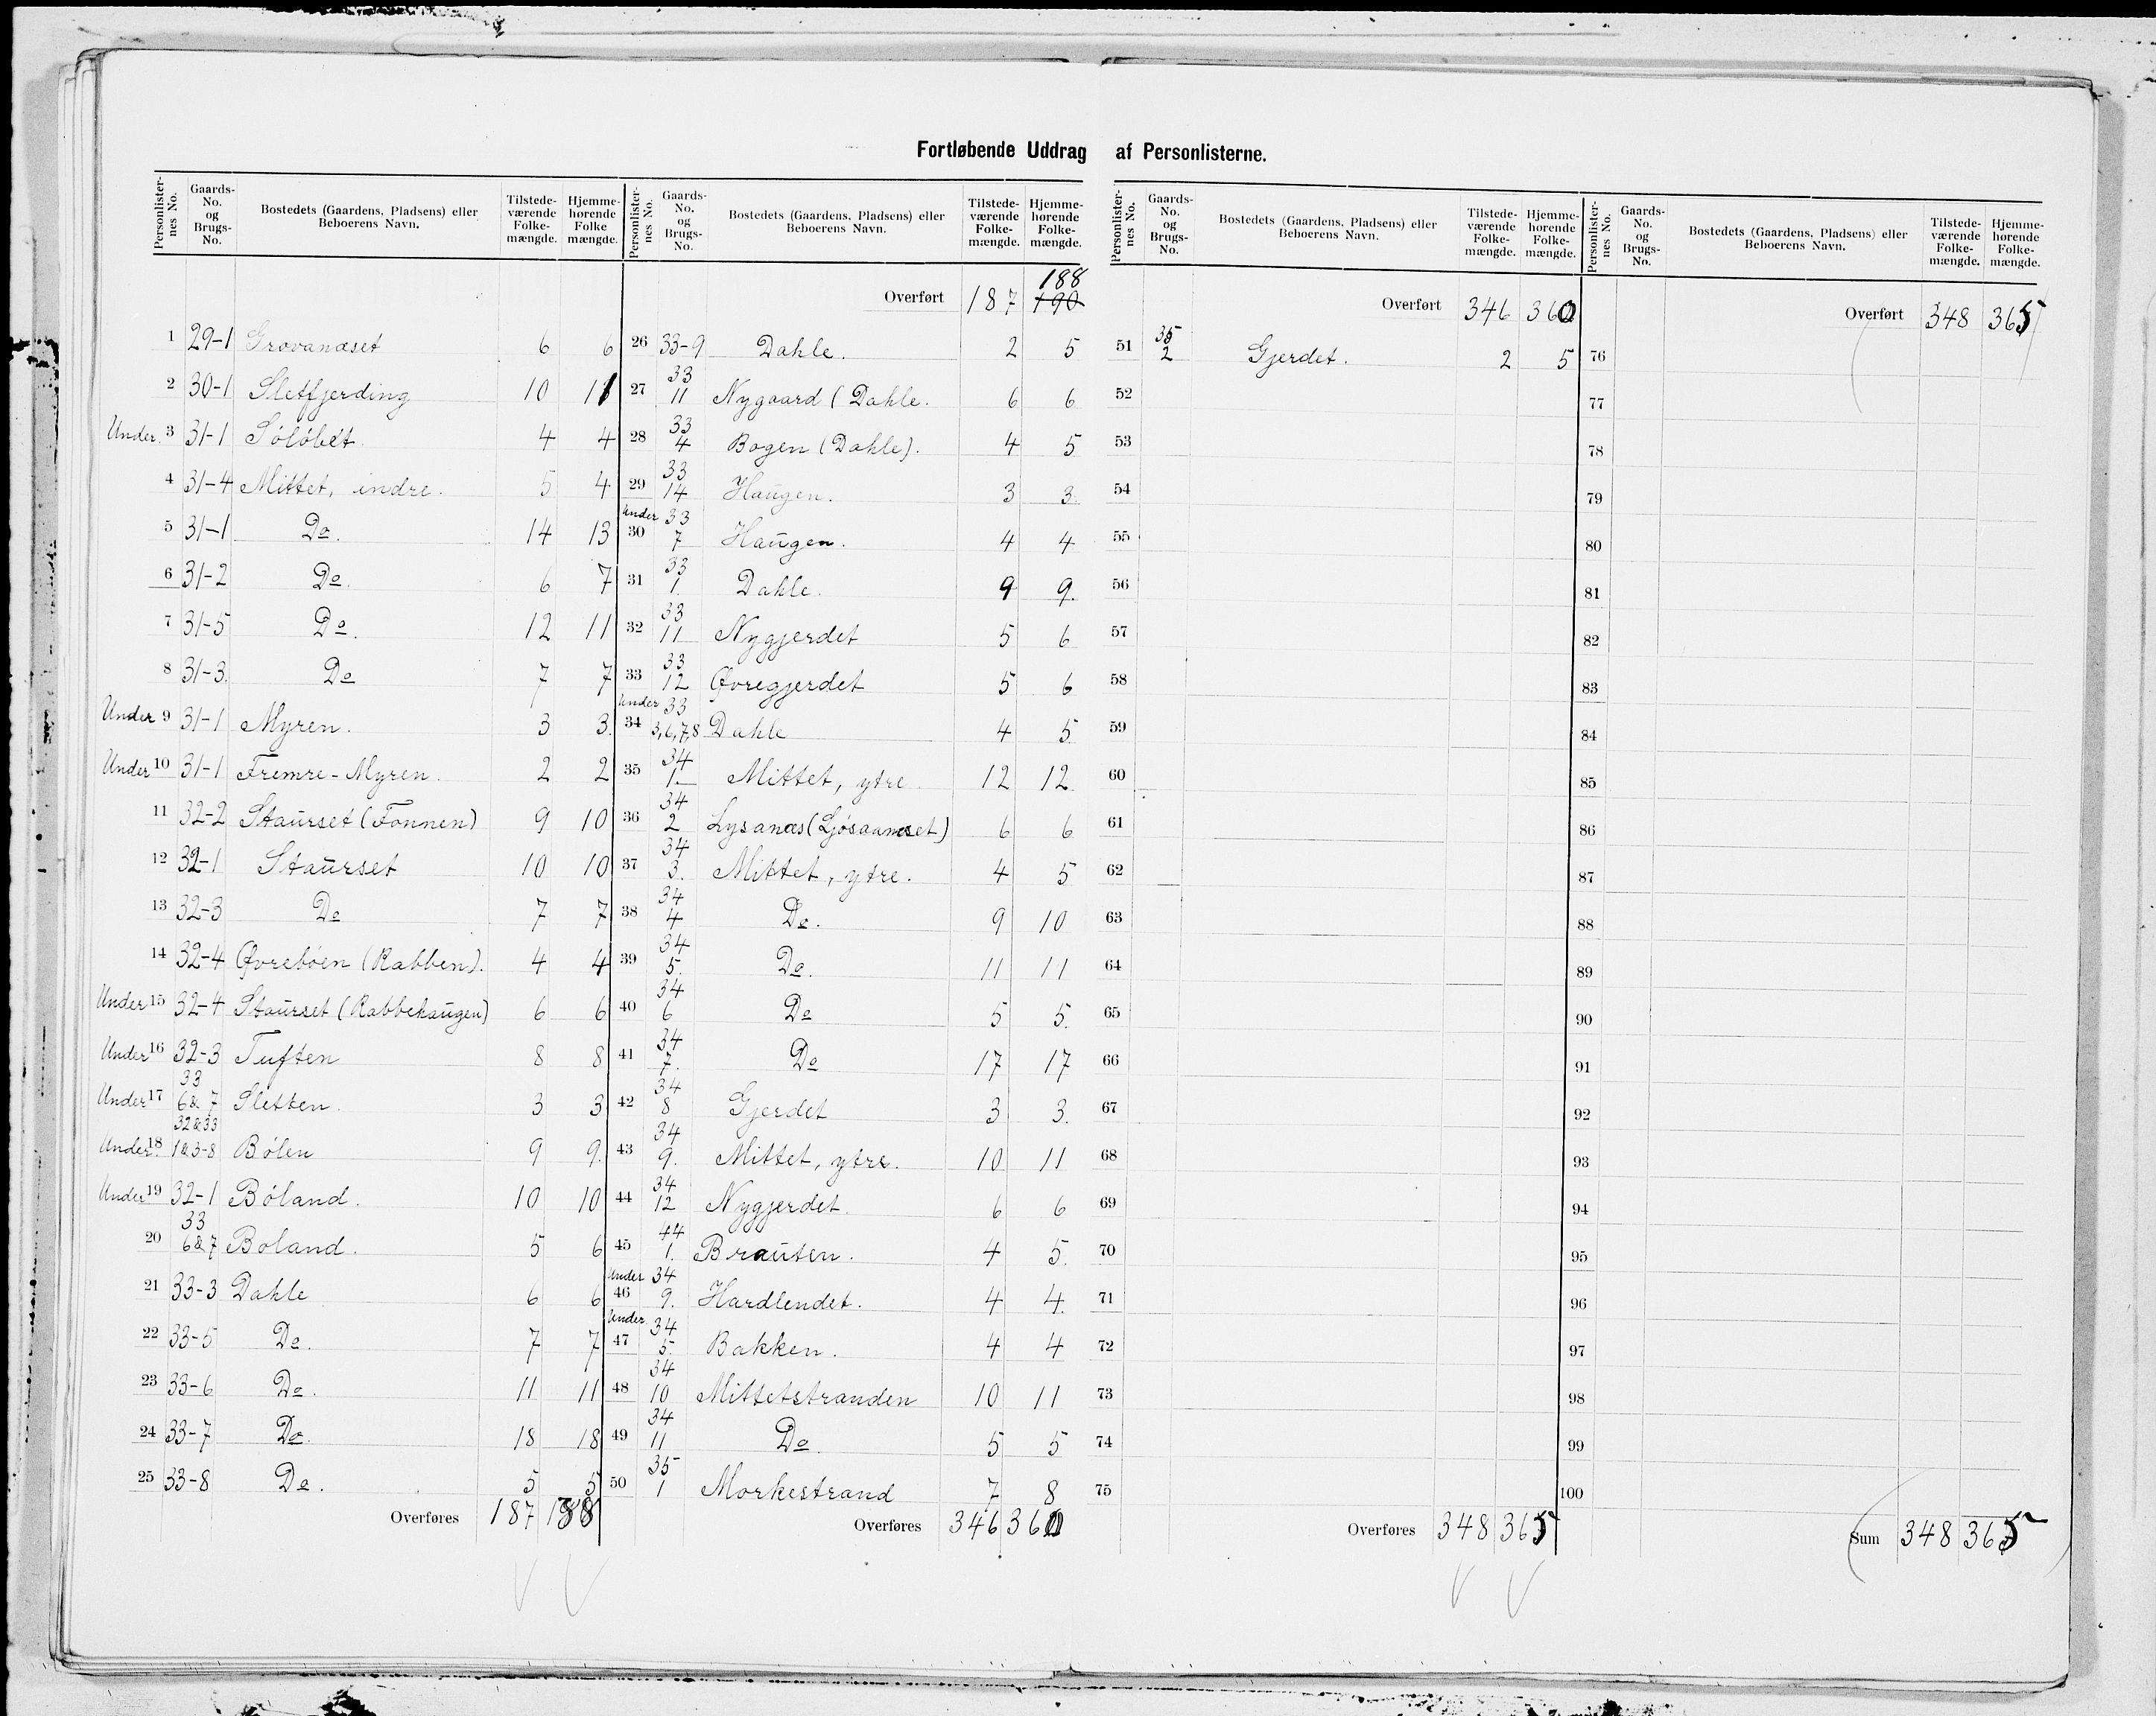 Fortløbende Uddrag af Personlisterne.
Personlisternes No. | Gaards-No. og Brugs-No. | Bostedets (Gaardens, Pladsens) eller Beboerens Navn. | Tilstedeværende Folkemængde. | Hjemmehørende Folkemængde.
1 29-1 Grovanæset 6 6
2 30-1 Sletfjerding 10 11
Under 3 31-1 Söløbet 4 4
4 31-4 Mittet, indre. 5 4
5 31-1 Do. 14 13
6 31-2 Do. 6 7
7 31-5 Do. 12 11
8 31-3. Do 7 7
Under 9 31-1 Myren. 3 3.
Under 10 31-1 Fremre-Myren. 2 2
11 32-2 Staurset (Fonnen) 9 10
12 32-1 Staurset 10 10
13 32-3 Do 7 7
14 32-4 Øvrebøen (Rabben). 4 4
Under 15 32-4 Staurset (Rabbehaugen) 6 6
Under 16 32-3 Tuften 8 8
Under 17 33 6 & 7 Sletten. 3 3
Under 18 32 & 33 1 & 3-8 Bölen 9 9.
Under 19 32-1 Böland. 10 10
20 33 6 & 7 Boland. 5 6
21 33-3 Dahle 6 6
22 33-5 Do. 7 7
23 33-6 Do. 11 11
24 33-7 Do. 18 18
25 33-8 Do. 5 5
Overføres 187 188
Personlisternes No. | Gaards-No. og Brugs-No. | Bostedets (Gaardens, Pladsens) eller Beboerens Navn. | Tilstedeværende Folkemængde. | Hjemmehørende Folkemængde.
188
Overført 187 190
26 33-9 Dahle. 2 5
27 33 11 Nygaard (Dahle. 6 6
28 33 4 Bogen (Dahle). 4 5
29 33 14 Haugen. 3 3.
Under 30 33 7 Haugen. 4 4
31 33 1. Dahle. 9 9.
32 33 11 Nygjerdet 5 6
33 33 12 Øvregjerdet 5 6
Under 34 33 3,6,7,8 Dahle 4 5
35 34 1. Mittet, ytre. 12 12
36 34 2 Lysanæs (Ljösaanæset) 6 6
37 34 3. Mittet, ytre. 4 5
38 34 4 Do. 9 10
39 34 5. Do. 11 11
40 34 6 Do 5 5.
41 34 7. Do 17 17
42 34 8 Gjerdet 3 3.
43 34 9. Mittet, ytre. 10 11
44 34 12 Nygjerdet. 6 6
45 44 1. Brauten. 4 5.
Under 46 34 9. Hardlendet. 4 4.
Under 47 34 5. Bakken. 4 4
48 34 10 Mittetstranden 10 11
49 34 11 Do. 5 5
50 35 1 Morkestrand 7 8
Overføres 346 360
Personlisternes No. | Gaards-No. og Brugs-No. | Bostedets (Gaardens, Pladsens) eller Beboerens Navn. | Tilstedeværende Folkemængde. | Hjemmehørende Folkemængde.
Overført 346 360
51 35 2 Gjerdet. 2 5
52
53
54
55
56
57
58
59
60
61
62
63
64
65
66
67
68
69
70
71
72
73
74
75
Overføres 348 365
Personlisternes No. | Gaards-No. og Brugs-No. | Bostedets (Gaardens, Pladsens) eller Beboerens Navn. | Tilstedeværende Folkemængde. | Hjemmehørende Folkemængde.
Overført 348 365
76
77
78
79
80
81
82
83
84
85
86
87
88
89
90
91
92
93
94
95
96
97
98
99
100
Sum 348 365